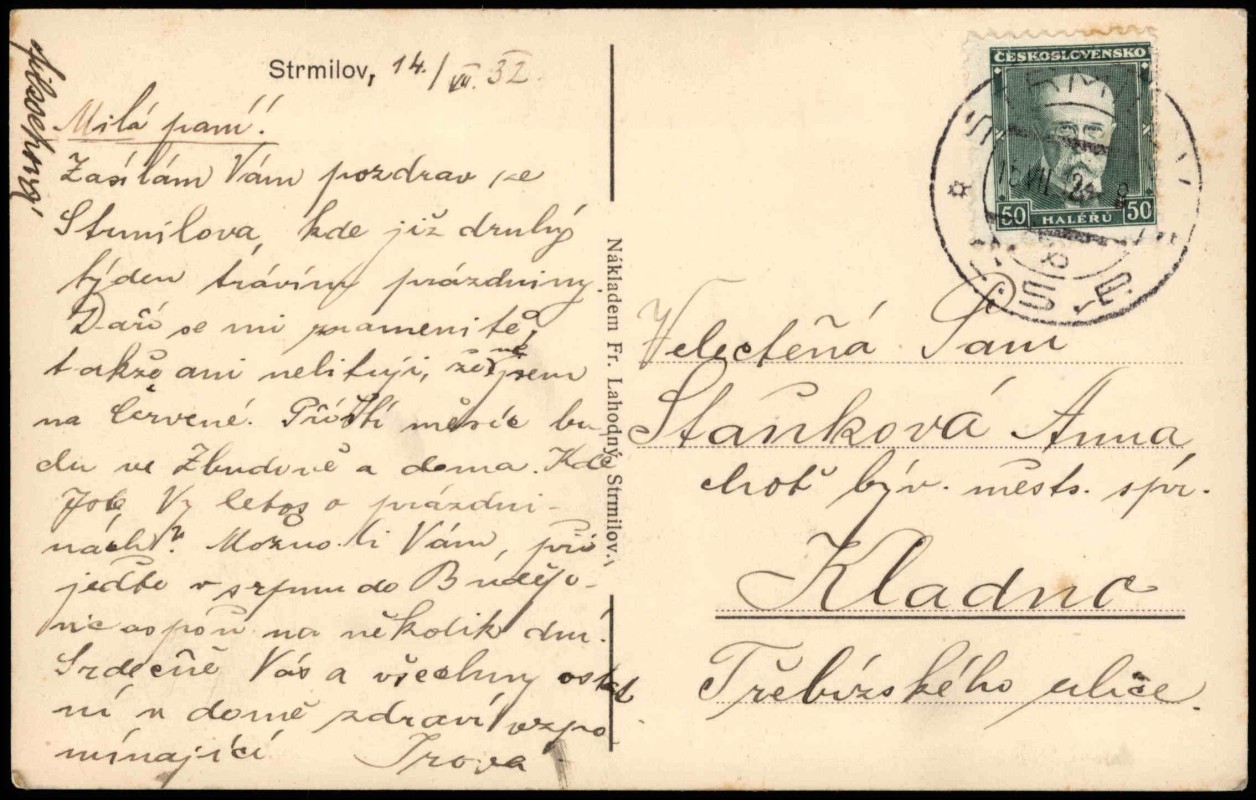 Strmilov, 14./VII. 32.
Milá paní!
Zasílám Vám pozdrav ze
Strmilova, kde již druhý
týden trávím prázdniny.
Daří se mi znamenitě,
takže ani nelituji, že nejsem
na Červené. Příští měsíc bu-
du ve Zbudově a doma. Kde
jste Vy letos o prázdni-
nách? Možno-li Vám, při
jeďte v srpnu do Budějo-
vic aspoň na několik dní.
Srdečně Vás a všechny ostat
ní v domě zdraví vzpo
mínající
Nákladem Fr. Lahodný, Strmilov.
ČESKOSLOVENSKO
50 HALÉŘŮ 50
Velectěná Paní
Staňková Anna
choť býv. městs. spr.
Kladno
Třebízského ulice.